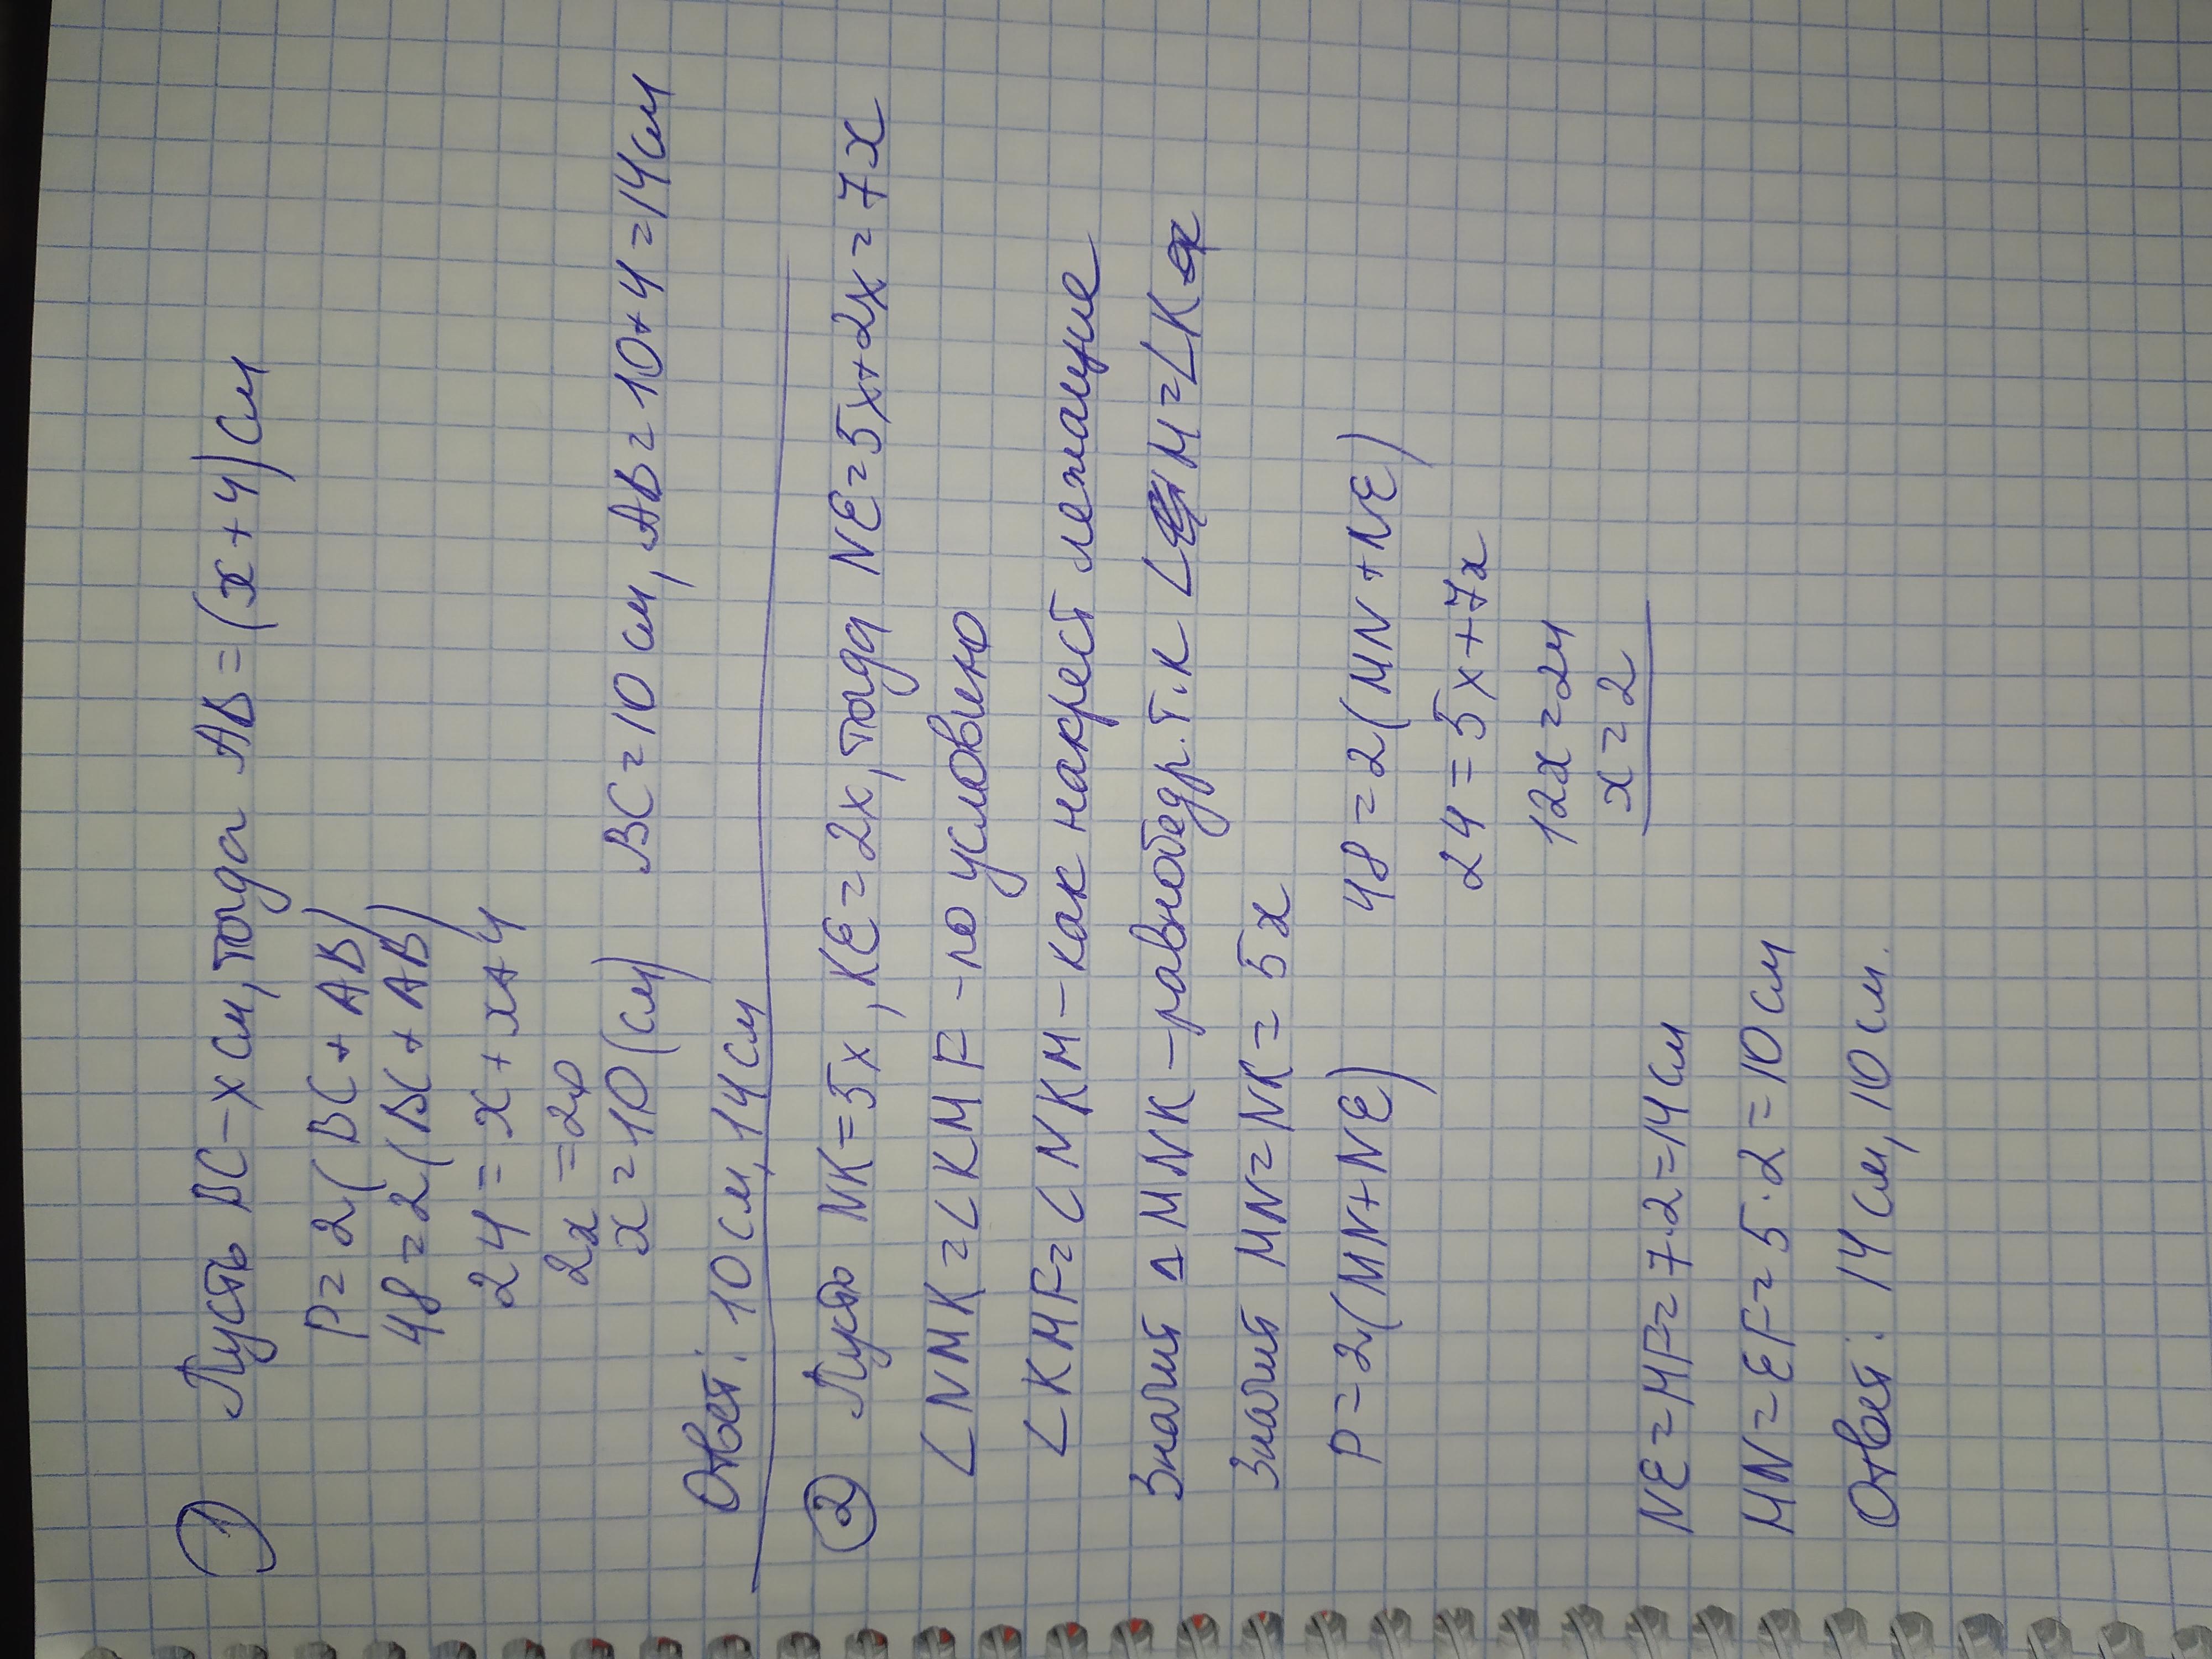 ① Пусть BC-x см, тогда AB=(x+4) см
P=2(BC+AB)
48=2(BC+AB)
24=x+x+4
2x=20
x=10(см) BC=10 см, AB=10+4=14см
Ответ: 10 см, 14 см
② Пусть NK=5x, KE=2x, тогда NE=5x+2x=7x
∠NMK=∠KMF-по условию
∠KMF=∠NKM-как накрест лежащие
Значит △MNK-равнобедр. т.к ∠M=∠K
Значит MN=NK=5x
P=2(MN+NE) 48=2(MN+NE)
24=5x+7x
12x=24
x=2
NE=MF=7·2=14 см
MN=EF=5·2=10 см
Ответ: 14 см, 10 см.